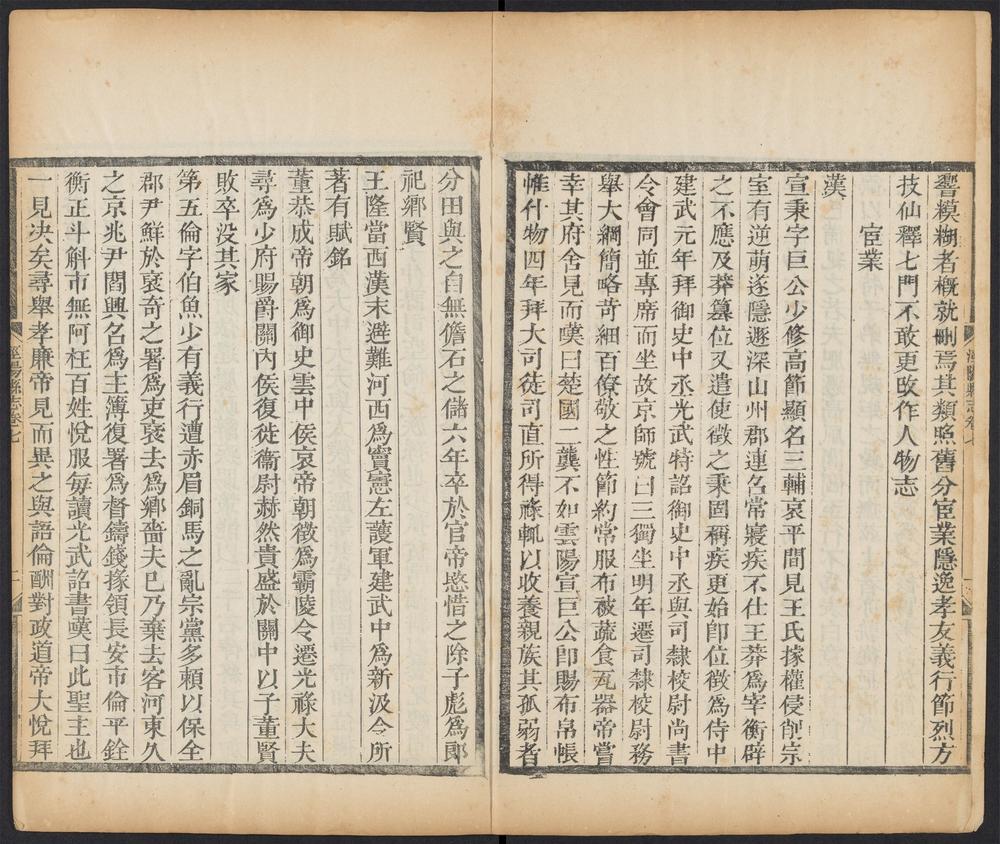 響糢糊者概就刪焉其類照舊分宦業隱逸孝友義行節烈方
技仙釋七門不敢更攺作人物志
宦業
漢
宣秉字巨公少修高節顯名三輔哀平間見王氏據權侵削宗
室有逆萌遂隱遯深山州郡連名常寢疾不仕王莽為宰衡辟
之不應及莽篡位又遣使徵之秉固稱疾更始卽位徵為侍中
建武元年拜御史中丞光武特詔御史中丞與司隸校尉尚書
令會同並專席而坐故京師號曰三獨坐明年遷司隸校尉務
舉大綱簡略苛細百僚敬之性節約常服布被蔬食瓦器帝嘗
幸其府舍見而嘆曰楚國二龔不如雲陽宣巨公卽賜布帛帳
帷什物四年拜大司徒司直所得祿輒以收養親族其孤弱者
涇陽縣志卷七
分田與之自無儋石之儲六年卒於官帝愍惜之除子彪為郎
祀鄉賢
王隆當西漢末避難河西為竇憲左護軍建武中為新汲令所
著有賦銘
董恭成帝朝為御史雲中侯哀帝朝徵為霸陵令遷光祿大夫
尋為少府賜爵關內侯復徙衞尉赫然貴盛於關中以子董賢
敗卒没其家
第五倫字伯魚少有義行遭赤眉銅馬之亂宗黨多賴以保全
郡尹鮮於裒奇之署為吏裒去為鄉嗇夫已乃棄去客河東久
之京兆尹閻興名為主簿復署為督鑄錢掾領長安市倫平銓
衡正斗斛市無阿枉百姓悅服每讀光武詔書嘆曰此聖主也
一見决矣尋舉孝廉帝見而異之與語倫酬對政道帝大悅拜
涇陽縣志卷七